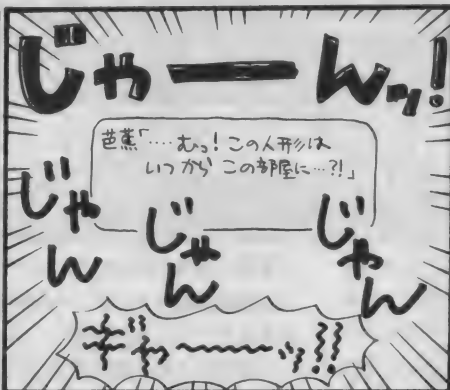 じゃーんッ!
芭蕉「……むっ!この人形は
いつから この部屋に…?!」
じゃん
じゃん
じゃん
キャーーーッ!!